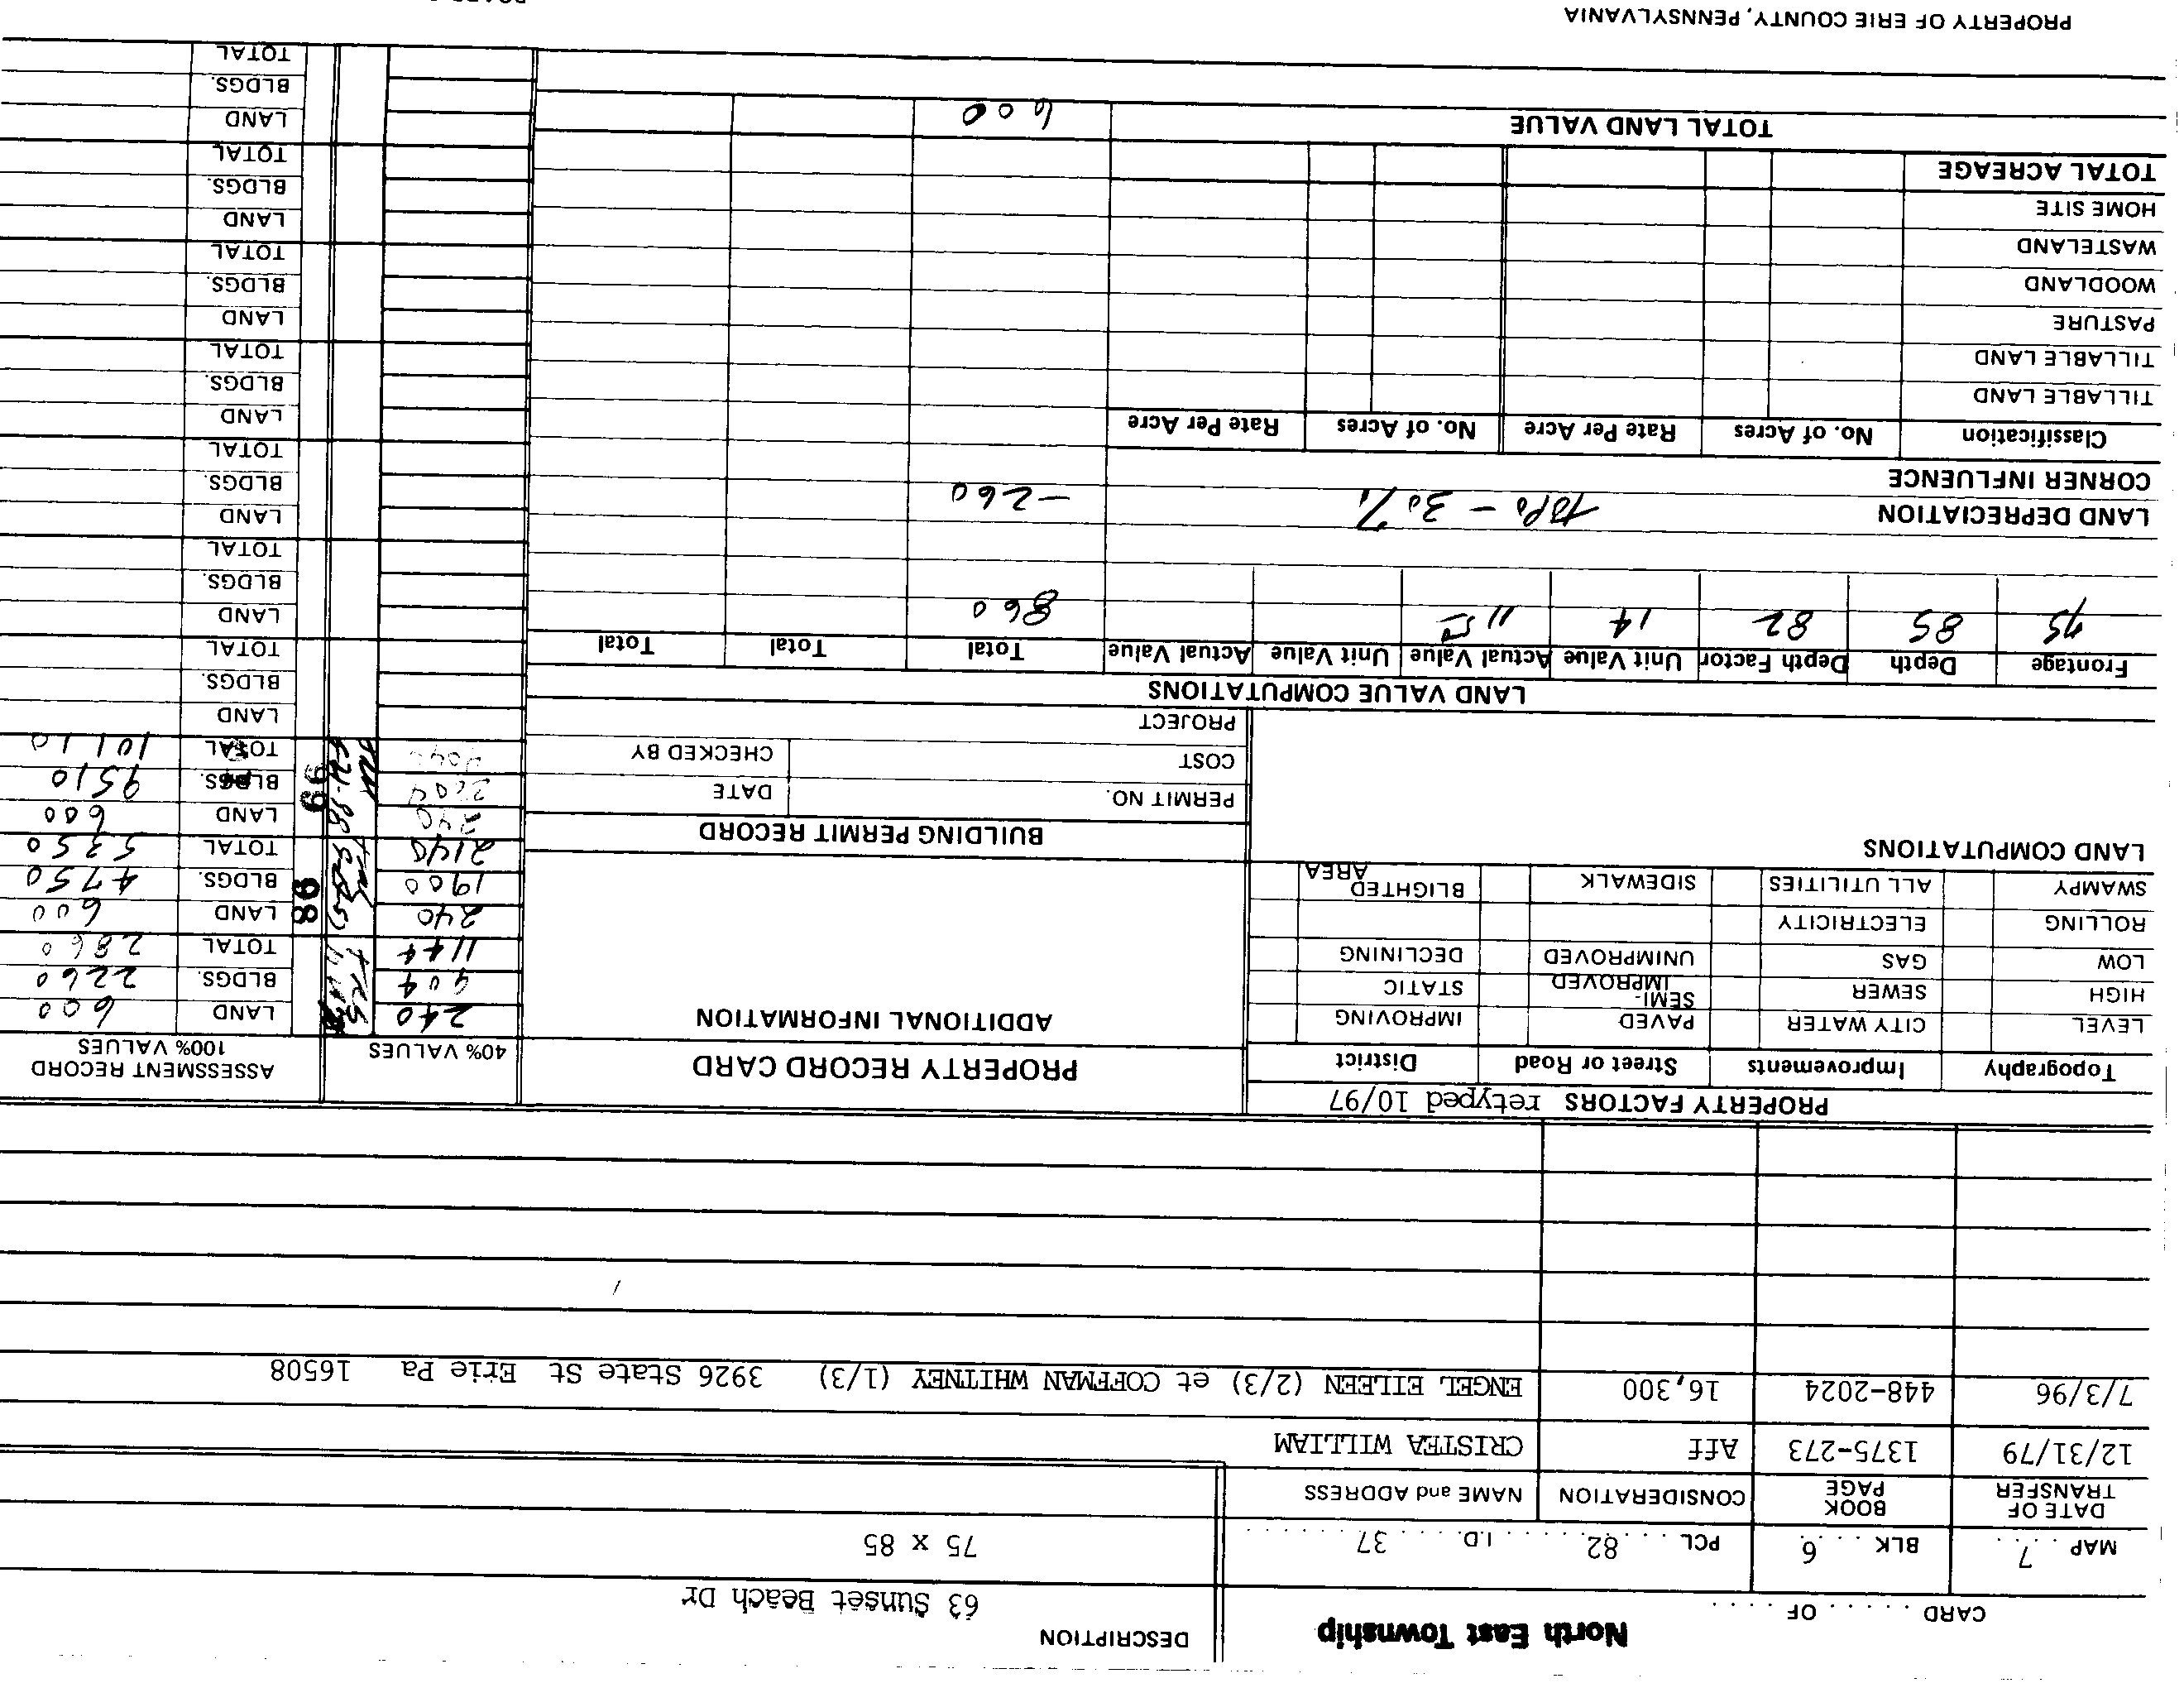 North East Township
DESCRIPTION
CARD . . . . . . OF . . . . .
63 Sunset Beach Dr
MAP . . 7 . . BLK . . . 6 PCL . . . . 82 . . . . . I.D. . . . . 37 . . . . . . . . . .
75 x 85
DATE OF TRANSFER BOOK PAGE CONSIDERATION NAME and ADDRESS
12/31/79 1375-273 Aff CRISTEA WILLIAM
7/3/96 448-2024 16,300 ENGEL EILEEN (2/3) et COFFMAN WHITNEY (1/3) 3926 State St Erie Pa 16508
PROPERTY FACTORS retyped 10/97
Topography Improvements Street or Road District
LEVEL CITY WATER PAVED IMPROVING
HIGH SEWER SEMI-IMPROVED STATIC
LOW GAS UNIMPROVED DECLINING
ROLLING ELECTRICITY
SWAMPY ALL UTILITIES SIDEWALK BLIGHTED AREA
LAND COMPUTATIONS
PROPERTY RECORD CARD
ADDITIONAL INFORMATION
BUILDING PERMIT RECORD
PERMIT NO. DATE
COST CHECKED BY
PROJECT
40% VALUES
ASSESSMENT RECORD
100% VALUES
240 LAND 600
904 BLDGS. 2260
1144 TOTAL 2860
240 98 LAND 600
1900 BLDGS. 4750
2140 TOTAL 5350
240 99 LAND 600
BLDGS. 9510
TOTAL 10110
LAND
BLDGS.
TOTAL
LAND
BLDGS.
TOTAL
LAND
BLDGS.
TOTAL
LAND
BLDGS.
TOTAL
LAND
BLDGS.
TOTAL
LAND
BLDGS.
TOTAL
LAND
BLDGS.
TOTAL
LAND VALUE COMPUTATIONS
Frontage Depth Depth Factor Unit Value Actual Value Unit Value Actual Value Total Total Total
75 85 82 14 860
LAND DEPRECIATION topo - 30% -260
CORNER INFLUENCE
Classification No. of Acres Rate Per Acre No. of Acres Rate Per Acre
TILLABLE LAND
TILLABLE LAND
PASTURE
WOODLAND
WASTELAND
HOME SITE
TOTAL ACREAGE
TOTAL LAND VALUE 600
PROPERTY OF ERIE COUNTY, PENNSYLVANIA